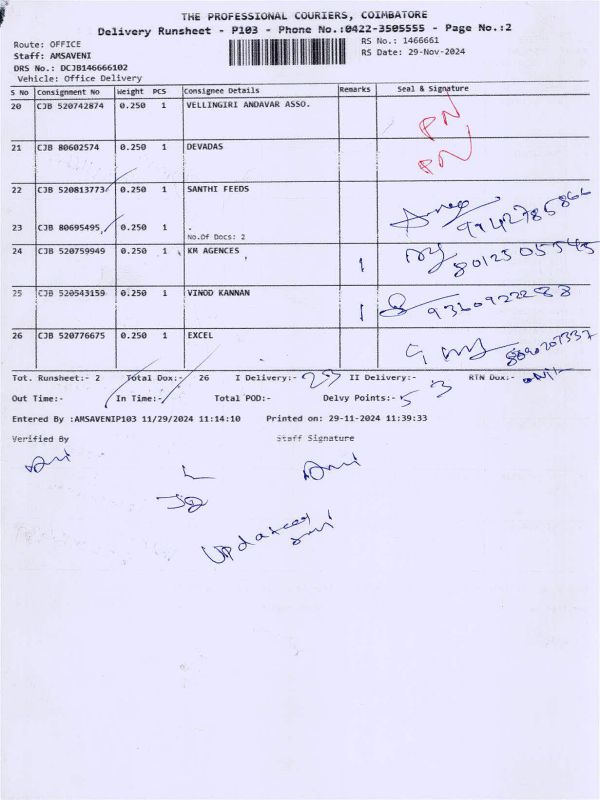 THE PROFESSIONAL COURIERS, COIMBATORE
Delivery Runsheet - P103 - Phone No.:0422-3505555 - Page No.:2
Route: OFFICE RS No.: 1466661
Staff: AMSAVENI RS Date: 29-Nov-2024
DRS No.: DCJB146666102
Vehicle: Office Delivery
S No Consignment No Weight PCS Consignee Details Remarks Seal & Signature
20 CJB 520742874 0.250 1 VELLINGIRI ANDAVAR ASSO. PN
21 CJB 80602574 0.250 1 DEVADAS PN
22 CJB 520813773 0.250 1 SANTHI FEEDS
23 CJB 80695495 0.250 1 . 9942785866
No.Of Docs: 2
24 CJB 520759949 0.250 1 KM AGENCES 1 8012505545
25 CJB 520543159 0.250 1 VINOD KANNAN 1 9360922288
26 CJB 520776675 0.250 1 EXCEL
Tot. Runsheet:- 2 Total Dox:- 26 I Delivery:- 23 II Delivery:- 3 RTN Dox:- Nil
Out Time:- In Time:- Total POD:- Delvy Points:- 5
Entered By :AMSAVENIP103 11/29/2024 11:14:10 Printed on: 29-11-2024 11:39:33
Verified By Staff Signature
Updated